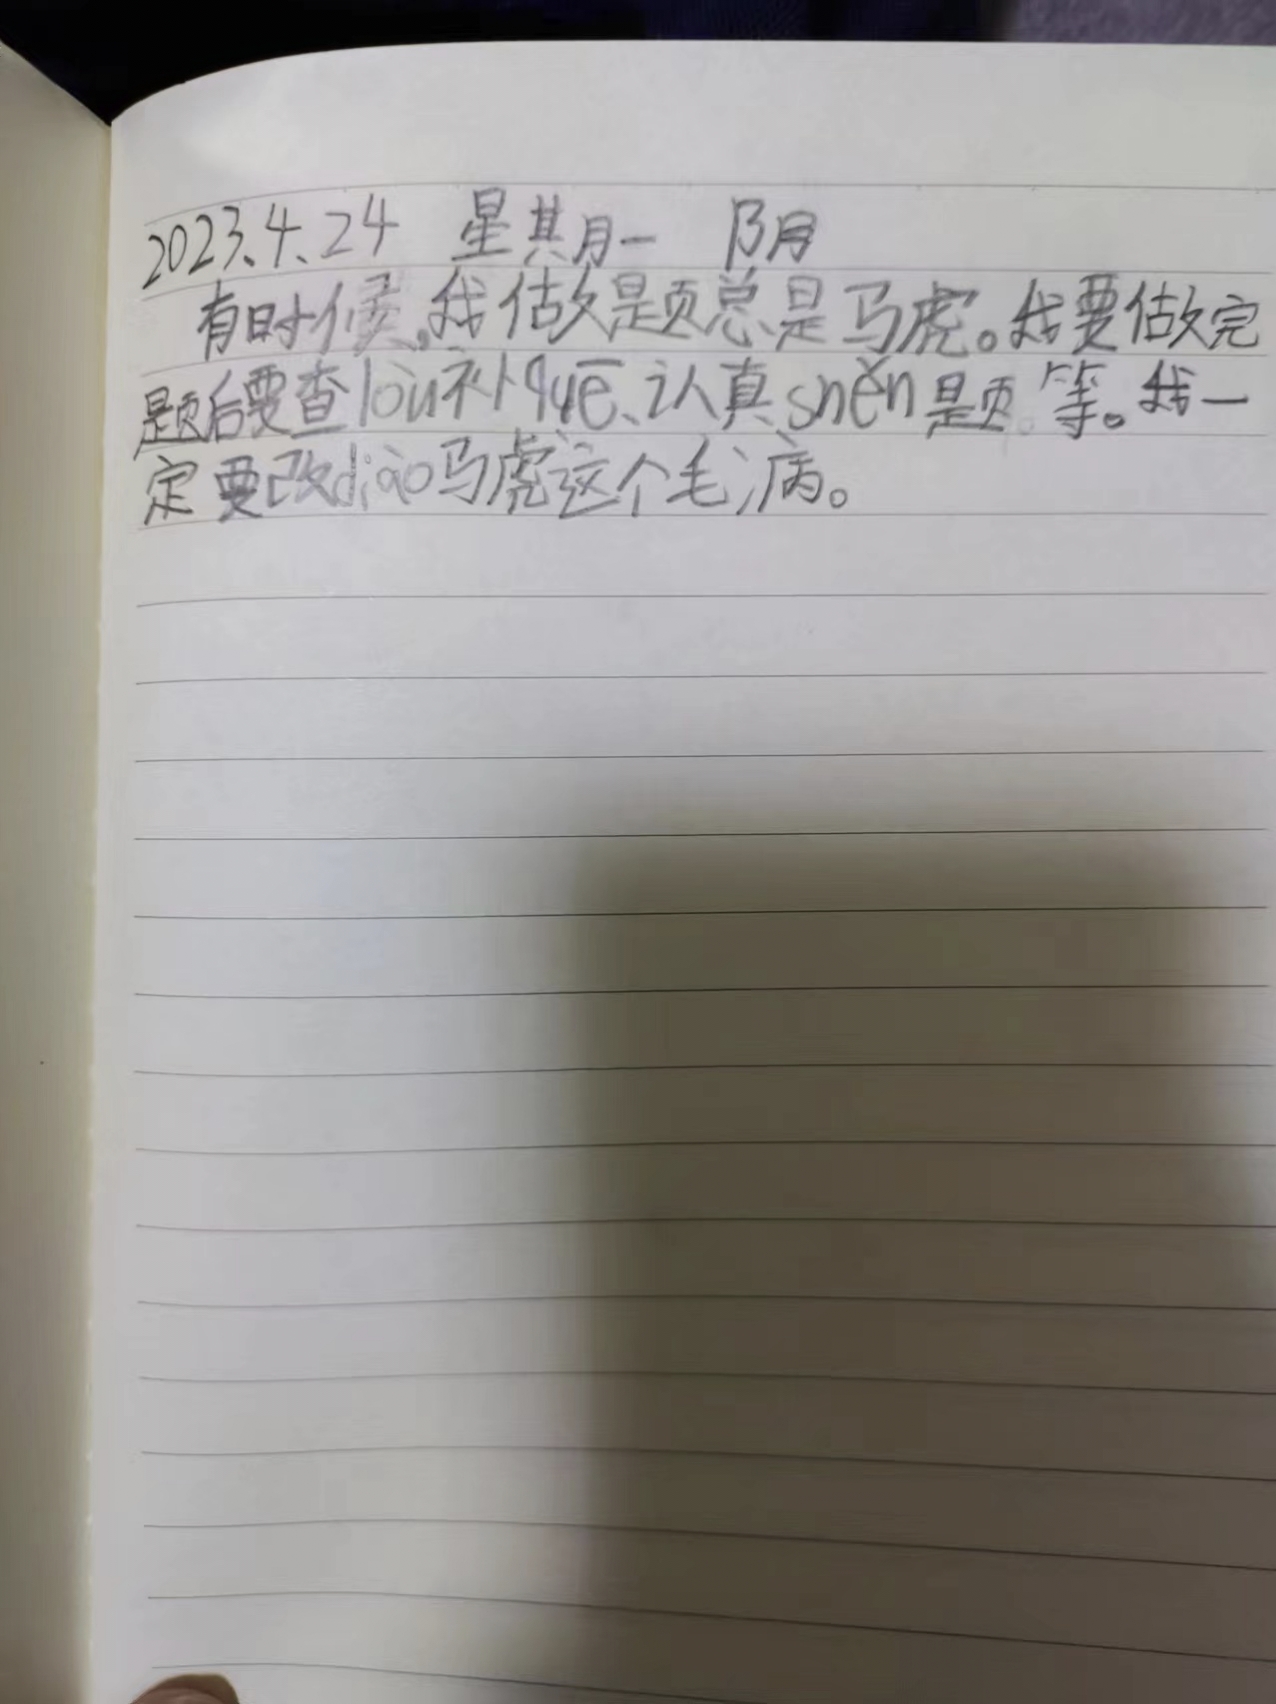 2023.4.24 星期一 阴
有时候,我做题总是马虎。我要做完
题后要查lòu补quē、认真shěn题等。我一
定要改diào马虎这个毛病。